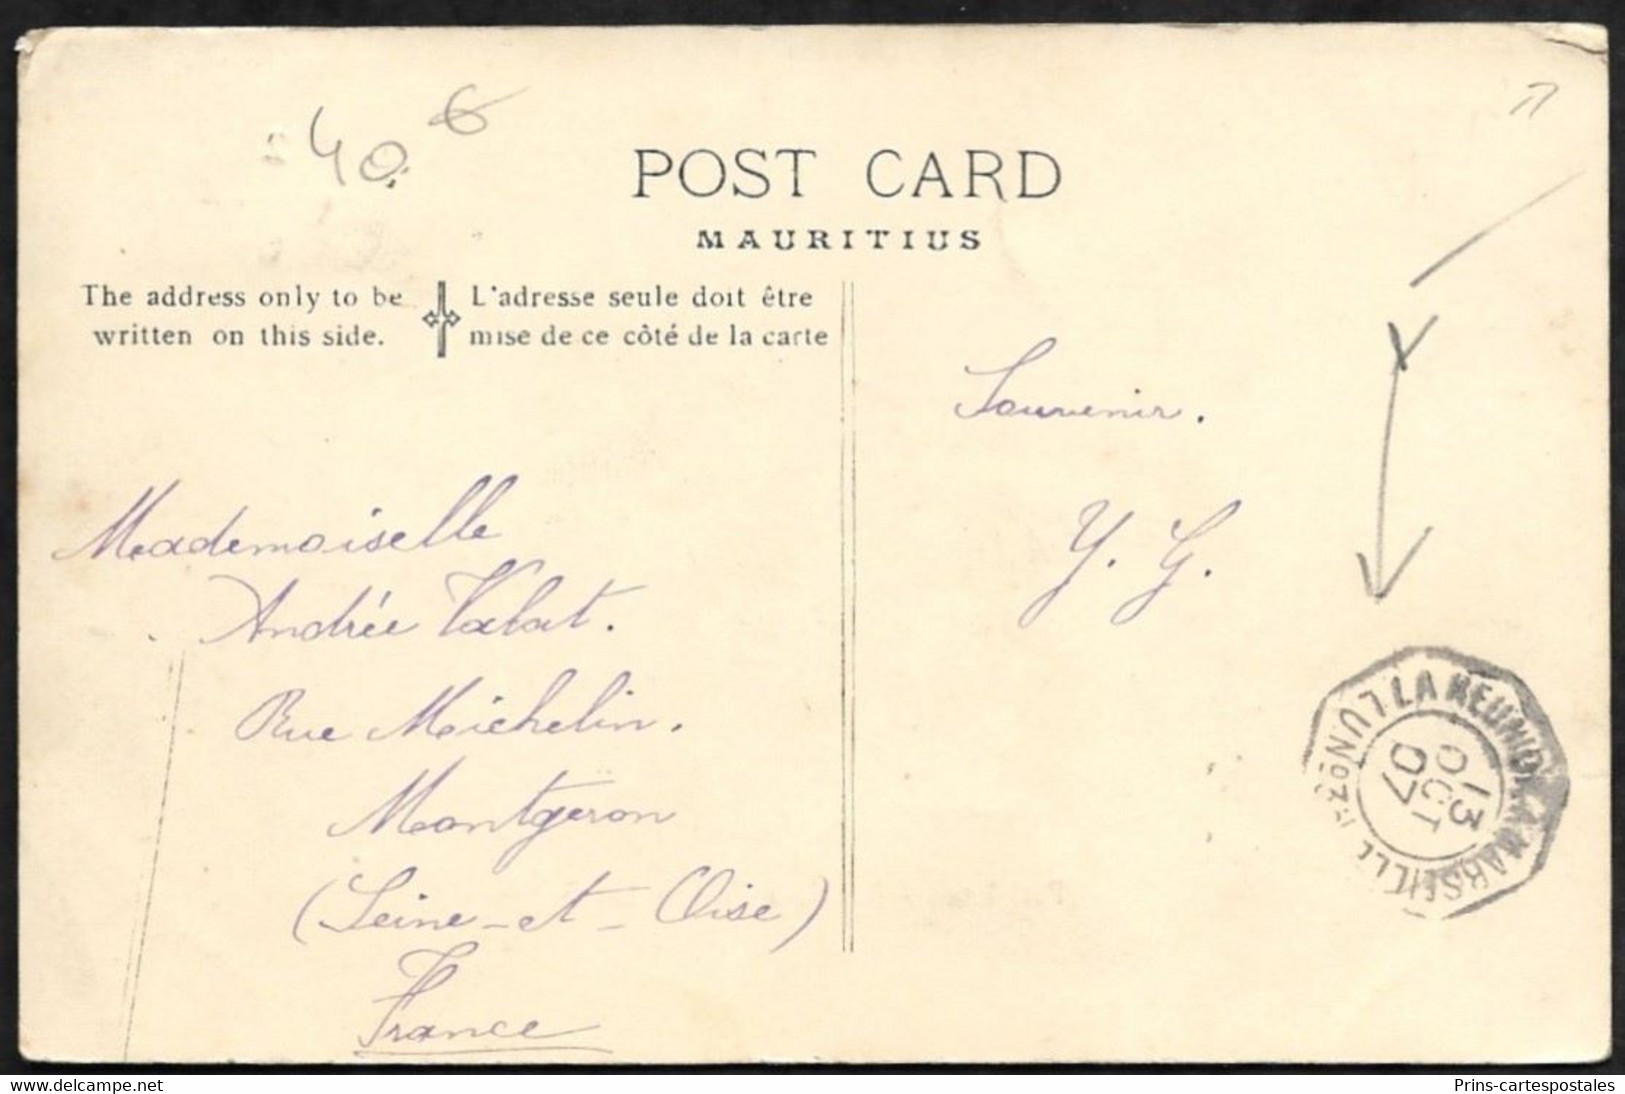 40 €
POST CARD
MAURITIUS
The address only to be
written on this side.
L'adresse seule doit être
mise de ce côté de la carte
Souvenir.
Y. G.
Mademoiselle
Andrée Valat.
Rue Michelin.
Montgeron
(Seine-et-Oise)
France
LA REUNION A MARSEILLE
13
OCT
07
delcampe.net
Prins-cartespostales